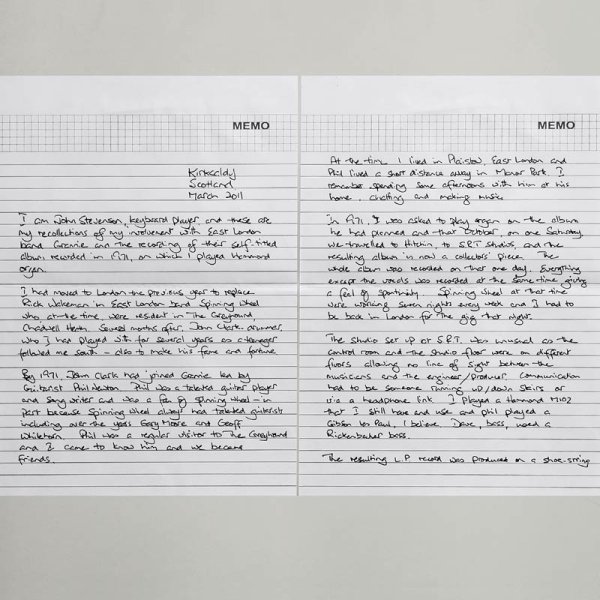 MEMO
Kirkcaldy
Scotland
March 2011
I am John Stevenson, keyboard player and these are
my recollections of my involvement with East London
band Grannie and the recording of their self-titled
album recorded in 1971, on which I played Hammond
organ.
I had moved to London the previous year to replace
Rick Wakeman in East London band Spinning Wheel
who at the time, were resident in The Greyhound,
Chadwell Heath. Several months after, John Clark drummer,
who I had played with for several years as a teenager
followed me south - also to make his fame and fortune.
By 1971 John Clark had joined Grannie led by
Guitarist Phil Newton. Phil was a talented guitar player
and song writer and was a fan of Spinning Wheel - in
part because Spinning Wheel always had talented guitarists
including over the years Gary Moore and Geoff
Whitehorn. Phil was a regular visitor to the Greyhound
and I came to know him and we became
friends.
MEMO
At the time I lived in Plaistow, East London and
Phil lived a short distance away in Manor Park. I
remember spending some afternoons with him at his
home, chatting and making music.
In 1971, I was asked to play organ on the album
he had planned and that October, on one Saturday
we travelled to Hitchin, to S.R.T. Studios, and the
resulting album is now a collectors' piece. The
whole album was recorded on that one day. Everything
except the vocals was recorded at the same time giving
a feel of spontinity. Spinning Wheel at that time
were working seven nights every week and I had to
be back in London for the gig that night.
The studio set up at S.R.T. was unusual as the
control room and the studio floor were on different
floors allowing no line of sight between the
musicians and the engineer/producer. Communication
had to be someone running up/down stairs or
via a headphone link. I played a Hammond M102
that I still have and use and Phil played a
Gibson Les Paul, I believe Dave, bass, used a
Rickenbacker bass.
The resulting L.P record was produced on a shoe-string